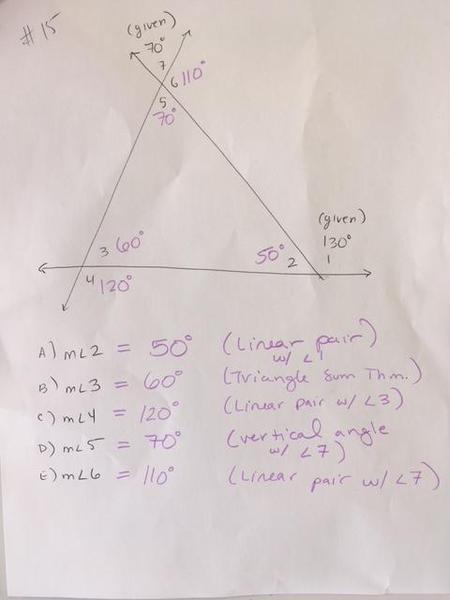 # 15
(given)
70°
7
6 110°
5
70°
(given)
130°
3 60°
50° 2 1
4 120°
A) m∠2 = 50° (Linear pair)
w/ ∠1
B) m∠3 = 60° (Triangle Sum Thm.)
C) m∠4 = 120° (Linear pair w/ ∠3)
D) m∠5 = 70° (vertical angle
w/ ∠7)
E) m∠6 = 110° (Linear pair w/ ∠7)